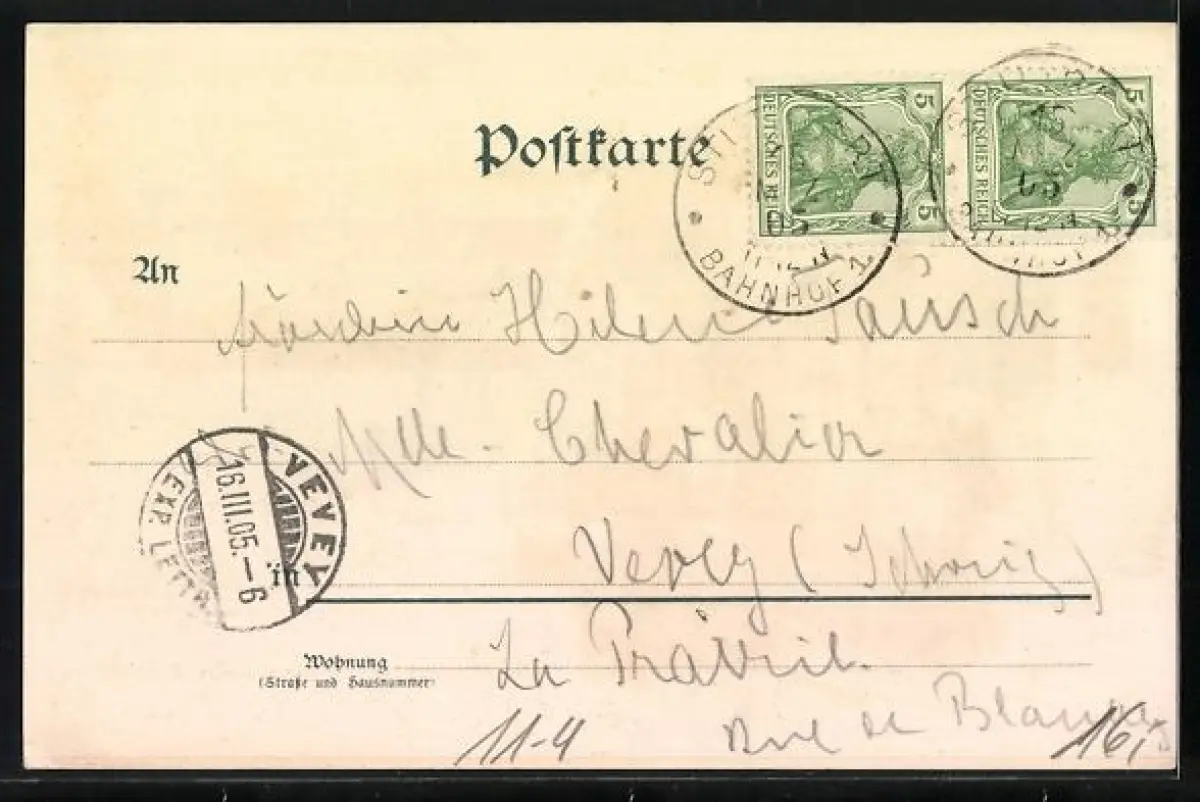 Postkarte
5 DEUTSCHES REICH 5
5 DEUTSCHES REICH 5
BAHNHOF
05
An
Fräulein Helene
Mlle. Chevalier
VEVEY
16.III.05.–6
EXP. LETTR.
in
Vevey (Schweiz)
Wohnung
(Straße und Hausnummer)
La
Rue de
11-4
16,